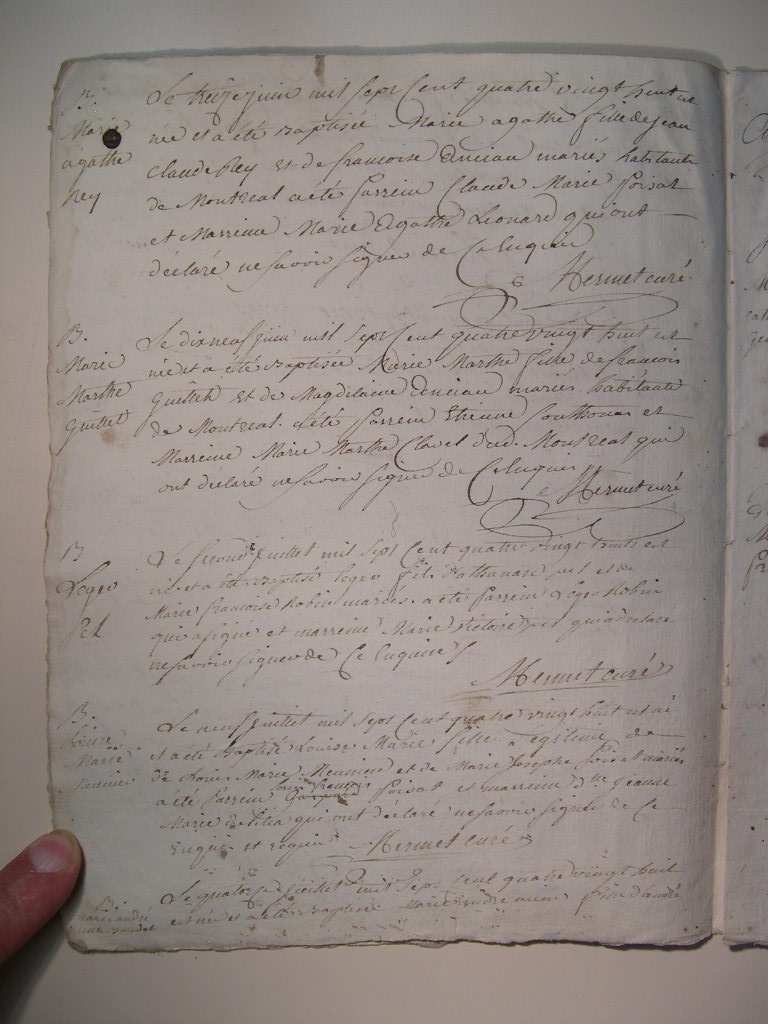 B.
Marie
agathe
Rey
Le treize juin mil sept cent quatre vingt huit est
née et a été baptisée Marie agathe fille de jean
Claude Rey et de francoise Ancian mariés habitants
de Montreal a été parrein Claude Marie poisat
et Marreine Marie Agathe Leonard qui ont
déclaré ne savoir signer de ce enquis
Hermet curé
B.
Marie
Marthe
Guillet
Le dix neuf juin mil sept cent quatre vingt huit est
née et a été baptisée Marie Marthe fille de francois
guillet et de Magdelaine Ancian mariés habitants
de Montreal. a été parrein Etienne et
Marreine Marie Marthe Clavel dud. Montreal qui
ont déclaré ne savoir signer de ce enquis
Hermet curé
B
Leger
Le second juillet mil sept cent quatre vingt huit est
né et a été baptisé leger fils d'athanase et de
Marie francoise Robin mariés. a été parrein Leger Robin
qui a signé et marreine Marie qui a déclaré
ne savoir signer de ce enquise
Hermet curé
B.
Louise
Marie
Le neuf juillet mil sept cent quatre vingt huit est né
et a été baptisé Louise Marie fille légitime de
de Louis Marie Meunier et de Marie Josephe mariés
a été parrein poisat et marreine dlle jeanne
Marie qui ont déclaré ne savoir signer de ce
enquis et requis Hermet curé
B.
Marie andré
Le quatorze juillet mil sept cent quatre vingt huit
est né et a été baptisé Marie andré